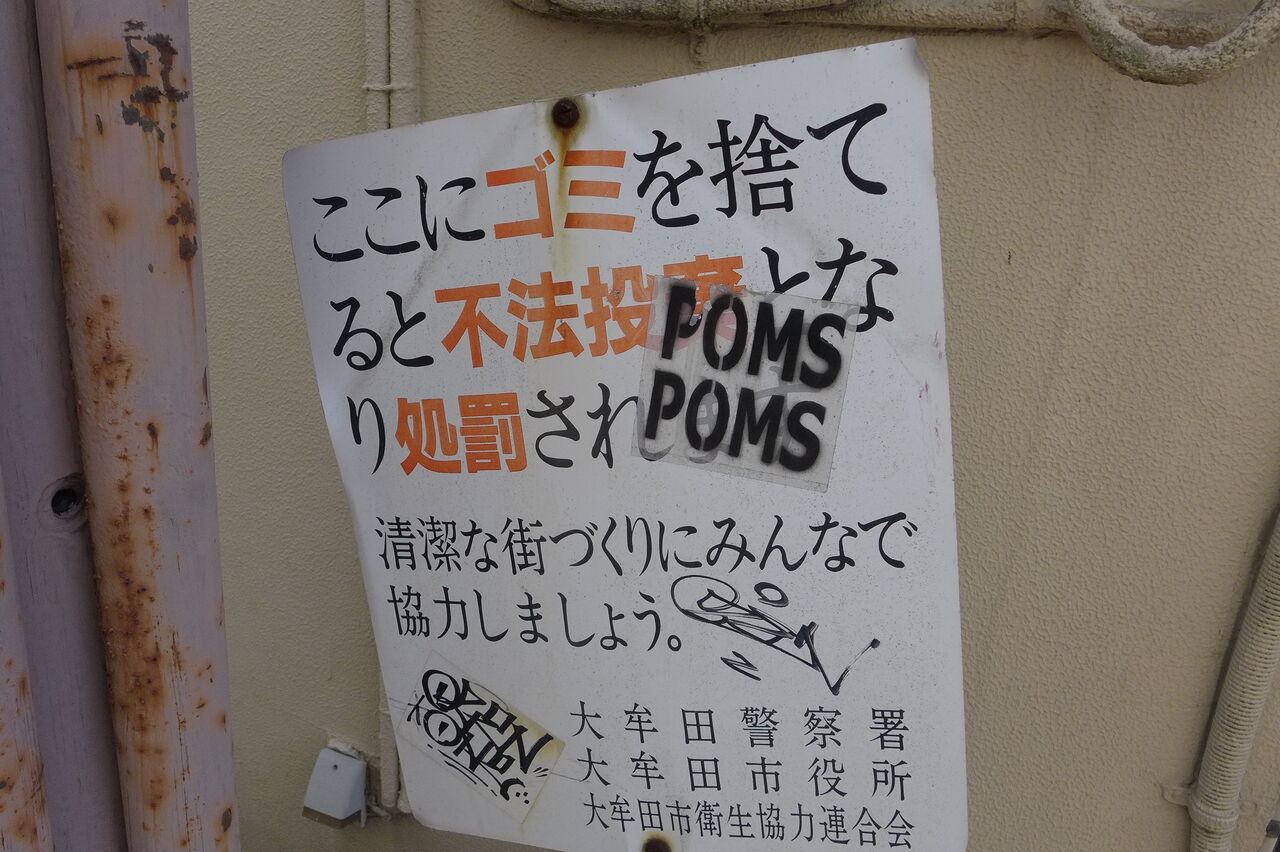 ここにゴミを捨て
ると不法投棄とな
り処罰され
POMS
POMS
清潔な街づくりにみんなで
協力しましょう。
大牟田警察署
大牟田市役所
大牟田市衛生協力連合会